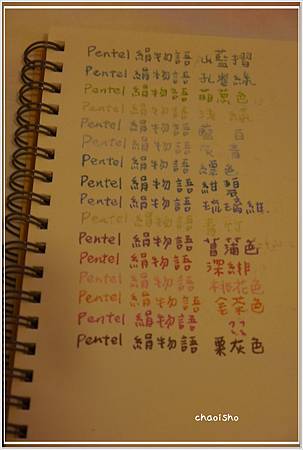 Pentel 絹物語 山藍摺
Pentel 絹物語 孔雀緑
Pentel 絹物語 萌黄色
Pentel 絹物語 浅緑
Pentel 絹物語 藍白
Pentel 絹物語 灰青
Pentel 絹物語 縹色
Pentel 絹物語 紺碧
Pentel 絹物語 琉璃紺
Pentel 絹物語 青竹
Pentel 絹物語 菖蒲色
Pentel 絹物語 深緋
Pentel 絹物語 桃花色
Pentel 絹物語 金茶色
Pentel 絹物語 ??
Pentel 絹物語 栗灰色
chaoisho